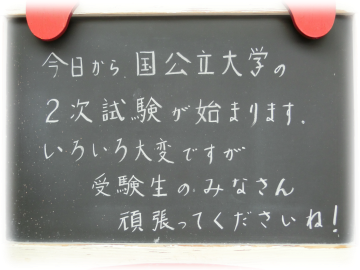 今日から国公立大学の
2次試験が始まります.
いろいろ大変ですが
受験生のみなさん
頑張ってくださいね!